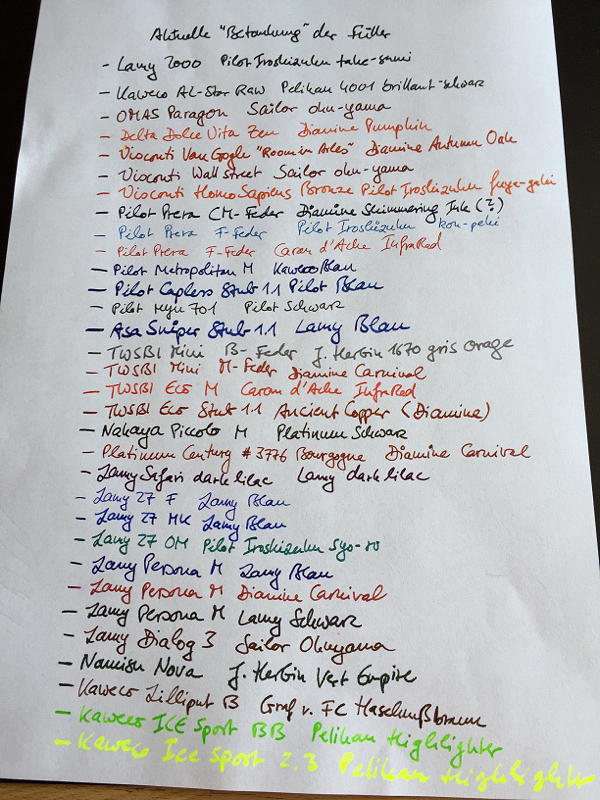 Aktuelle "Betankung" der Füller
- Lamy 2000 Pilot Iroshizuku take-sumi
- Kaweco AL-Star Raw Pelikan 4001 brillant-schwarz
- OMAS Paragon Sailor oku-yama
- Delta Dolce Vita Zen Diamine Pumpkin
- Visconti Van Gogh "Room in Arles" Diamine Autumn Oak
- Visconti Wall Street Sailor oku-yama
- Visconti Homo Sapiens Bronze Pilot Iroshizuku fuyu-gaki
- Pilot Prera CM-Feder Diamine Shimmering Ink (?)
- Pilot Prera F-Feder Pilot Iroshizuku kon-peki
- Pilot Prera F-Feder Caran d'Ache InfraRed
- Pilot Metropolitan M Kaweco Blau
- Pilot Capless Stub 1.1 Pilot Blau
- Pilot Myu 701 Pilot Schwarz
- Asa Sniper Stub 1.1 Lamy Blau
- TWSBI Mini B-Feder J. Herbin 1670 gris orage
- TWSBI Mini M-Feder Diamine Carnival
- TWSBI Eco M Caran d'Ache InfraRed
- TWSBI Eco Stub 1.1 Ancient Copper (Diamine)
- Nakaya Piccolo M Platinum Schwarz
- Platinum Century #3776 Bourgogne Diamine Carnival
- Lamy Safari dark lilac Lamy dark lilac
- Lamy 27 F Lamy Blau
- Lamy 27 MK Lamy Blau
- Lamy 27 OM Pilot Iroshizuku syo-ro
- Lamy Persona M Lamy Blau
- Lamy Persona M Diamine Carnival
- Lamy Persona M Lamy Schwarz
- Lamy Dialog 3 Sailor Okuyama
- Namisu Nova J. Herbin Vert Empire
- Kaweco Lilliput B Graf v. FC Haselnußbraun
- Kaweco ICE Sport BB Pelikan Highlighter
- Kaweco Ice Sport 2.3 Pelikan Highlighter